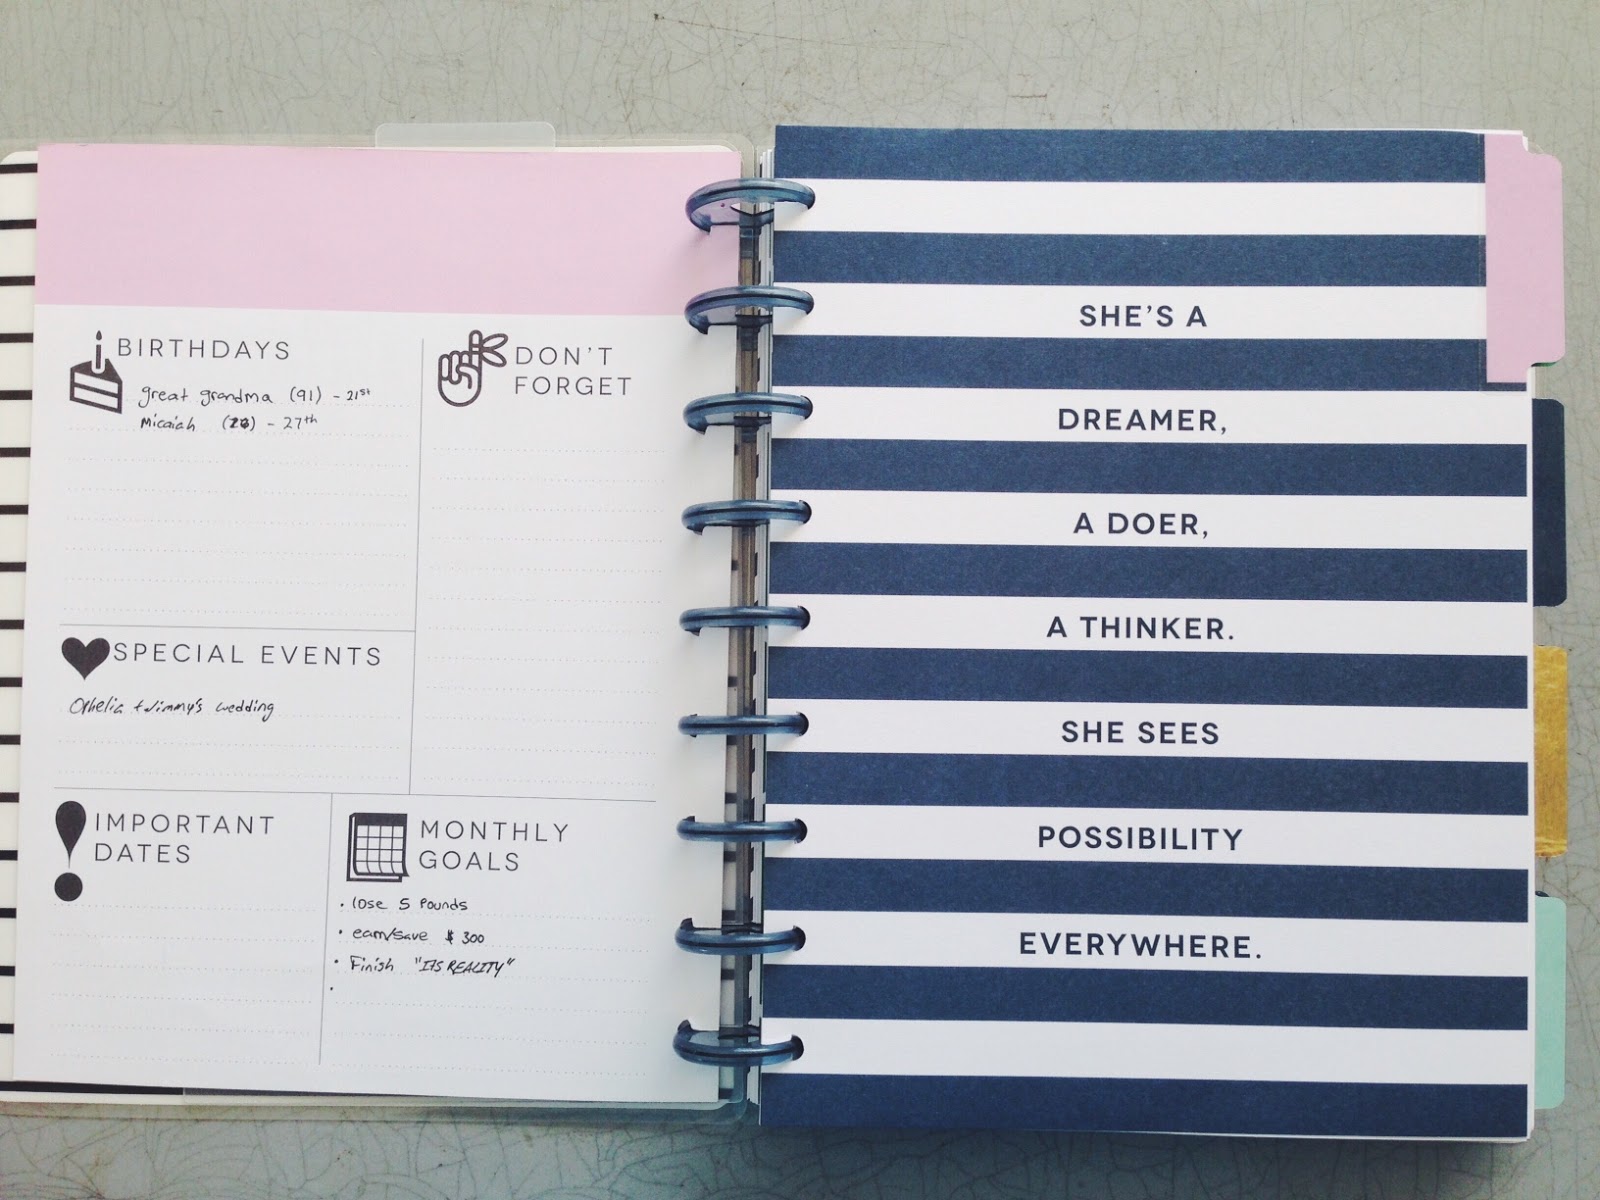 BIRTHDAYS
great grandma (91) - 21st
Micaiah - 27th
DON'T
FORGET
SPECIAL EVENTS
Ophelia + Jimmy's wedding
IMPORTANT
DATES
MONTHLY
GOALS
• lose 5 pounds
• earn/save $300
• Finish "ITS REALITY"
•
SHE'S A
DREAMER,
A DOER,
A THINKER.
SHE SEES
POSSIBILITY
EVERYWHERE.